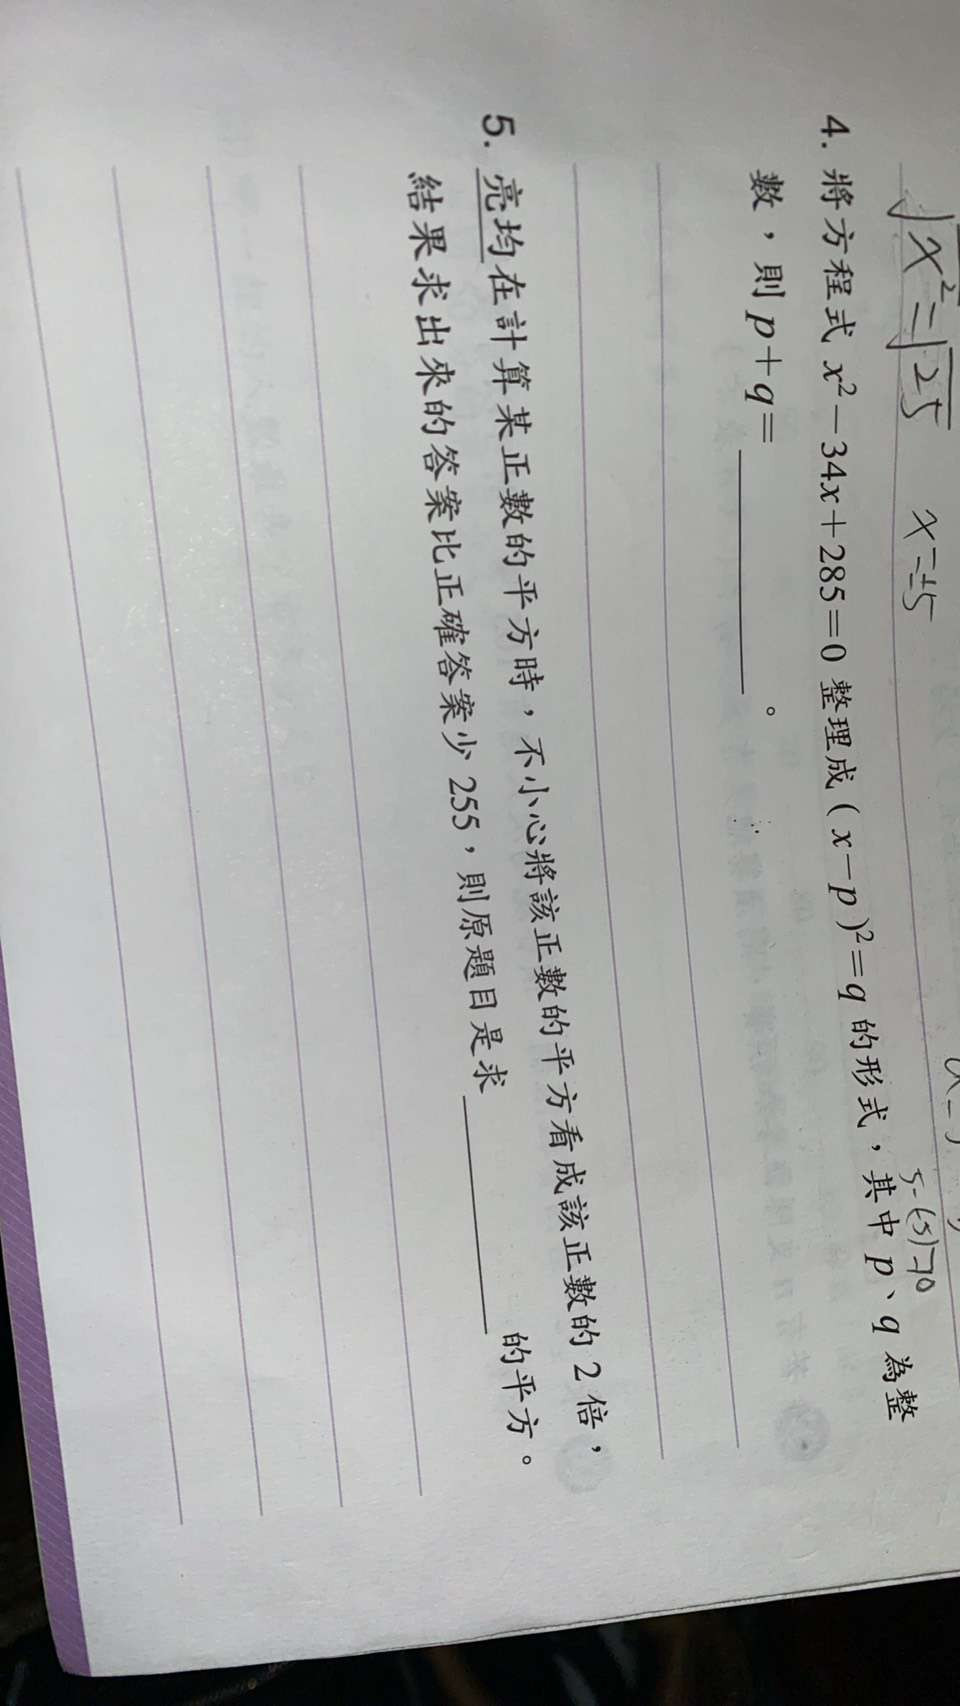 √x²=√25 x=±5
5-(-5)=10
4. 將方程式 x²－34x＋285＝0 整理成 ( x－p )²＝q 的形式，其中 p、q 為整
數，則 p＋q＝________。
5. 亮均在計算某正數的平方時，不小心將該正數的平方看成該正數的 2 倍，
結果求出來的答案比正確答案少 255，則原題目是求________的平方。